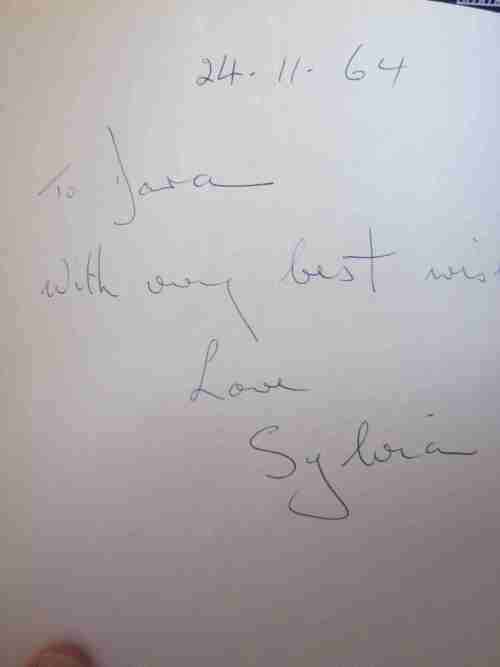 24. 11. 64
To Dara
With every best wis
Love
Sylvia